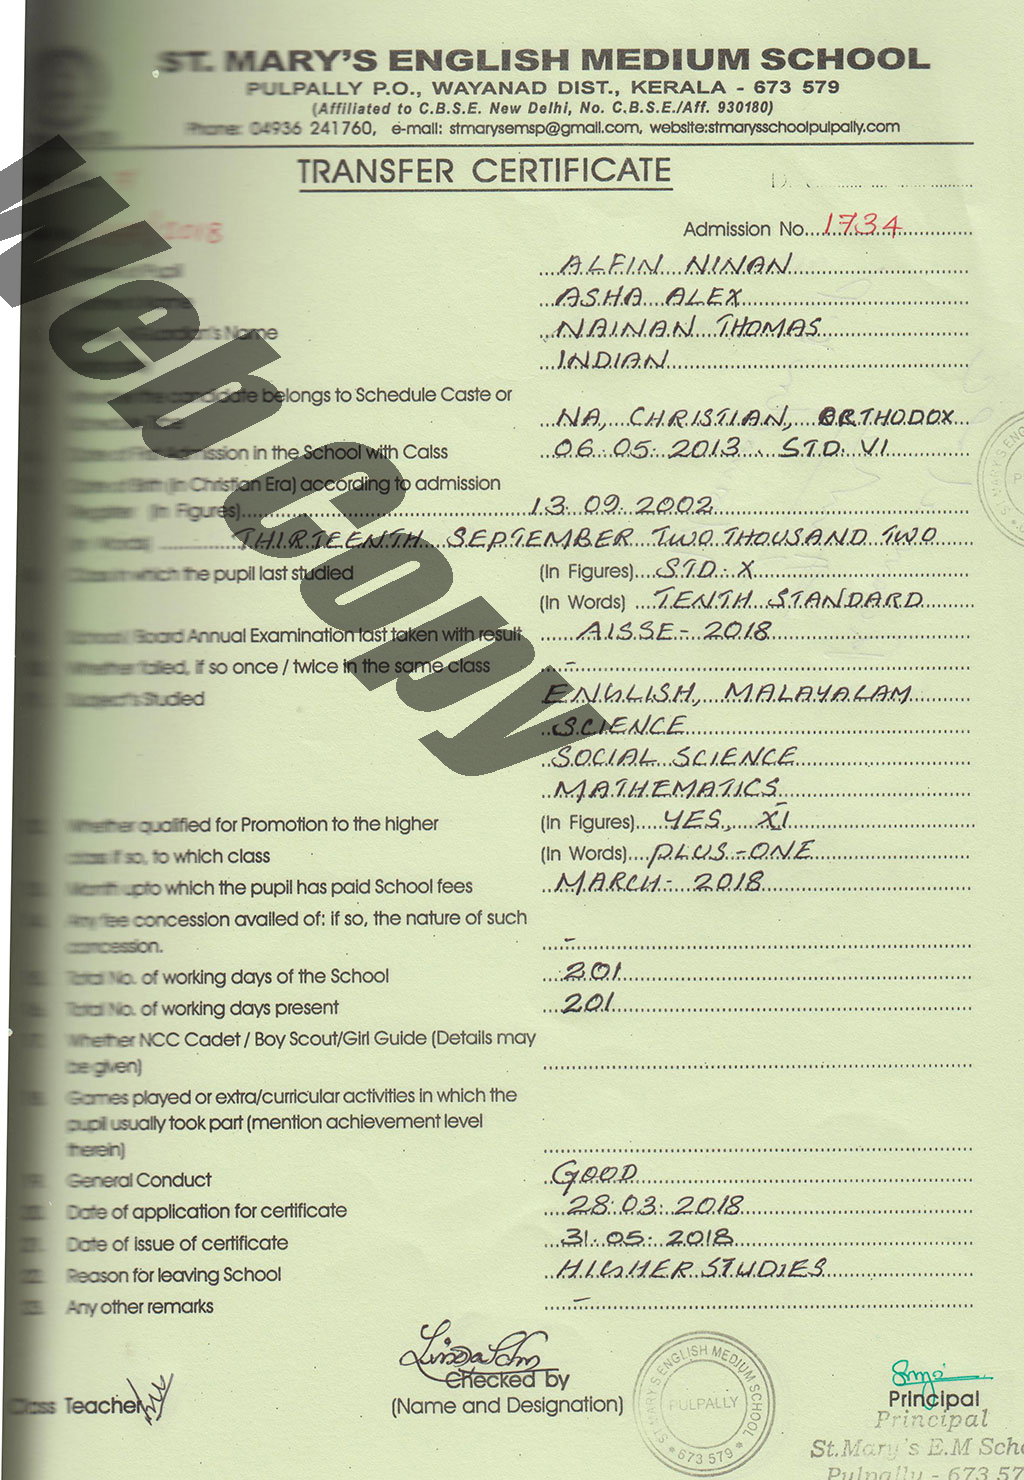 ST. MARY'S ENGLISH MEDIUM SCHOOL
PULPALLY P.O., WAYANAD DIST., KERALA - 673 579
(Affiliated to C.B.S.E. New Delhi, No. C.B.S.E./Aff. 930180)
Phone: 04936 241760, e-mail: stmarysemsp@gmail.com, website:stmarysschoolpulpally.com
TRANSFER CERTIFICATE
2018 Admission No. 1734
Pupil ALFIN NINAN
ASHA ALEX
Name NAINAN THOMAS
INDIAN
the candidate belongs to Schedule Caste or
NA, CHRISTIAN, ORTHODOX
Admission in the School with Calss 06.05.2013, STD. VI
Date of Birth (in Christian Era) according to admission
Register (In Figures) 13.09.2002
(In Words) THIRTEENTH SEPTEMBER TWO THOUSAND TWO
Class in which the pupil last studied (In Figures) STD. X
(In Words) TENTH STANDARD
School / Board Annual Examination last taken with result AISSE - 2018
Whether failed, if so once / twice in the same class -
Subject's Studied ENGLISH, MALAYALAM
SCIENCE
SOCIAL SCIENCE
MATHEMATICS
Whether qualified for Promotion to the higher (In Figures) YES, XI
class if so, to which class (In Words) PLUS-ONE
13. Month upto which the pupil has paid School fees MARCH - 2018
14. Any fee concession availed of: if so, the nature of such
concession. -
15. Total No. of working days of the School 201
16. Total No. of working days present 201
17. Whether NCC Cadet / Boy Scout/Girl Guide (Details may
be given)
18. Games played or extra/curricular activities in which the
pupil usually took part (mention achievement level
therein)
19. General Conduct GOOD
20. Date of application for certificate 28.03.2018
21. Date of issue of certificate 31.05.2018
22. Reason for leaving School HIGHER STUDIES
23. Any other remarks -
Class Teacher Checked by Principal
(Name and Designation)
Principal
St.Mary's E.M Scho
Pulpally - 673 57
ST. MARY'S ENGLISH MEDIUM SCHOOL
PULPALLY
* 673 579 *
Web Copy